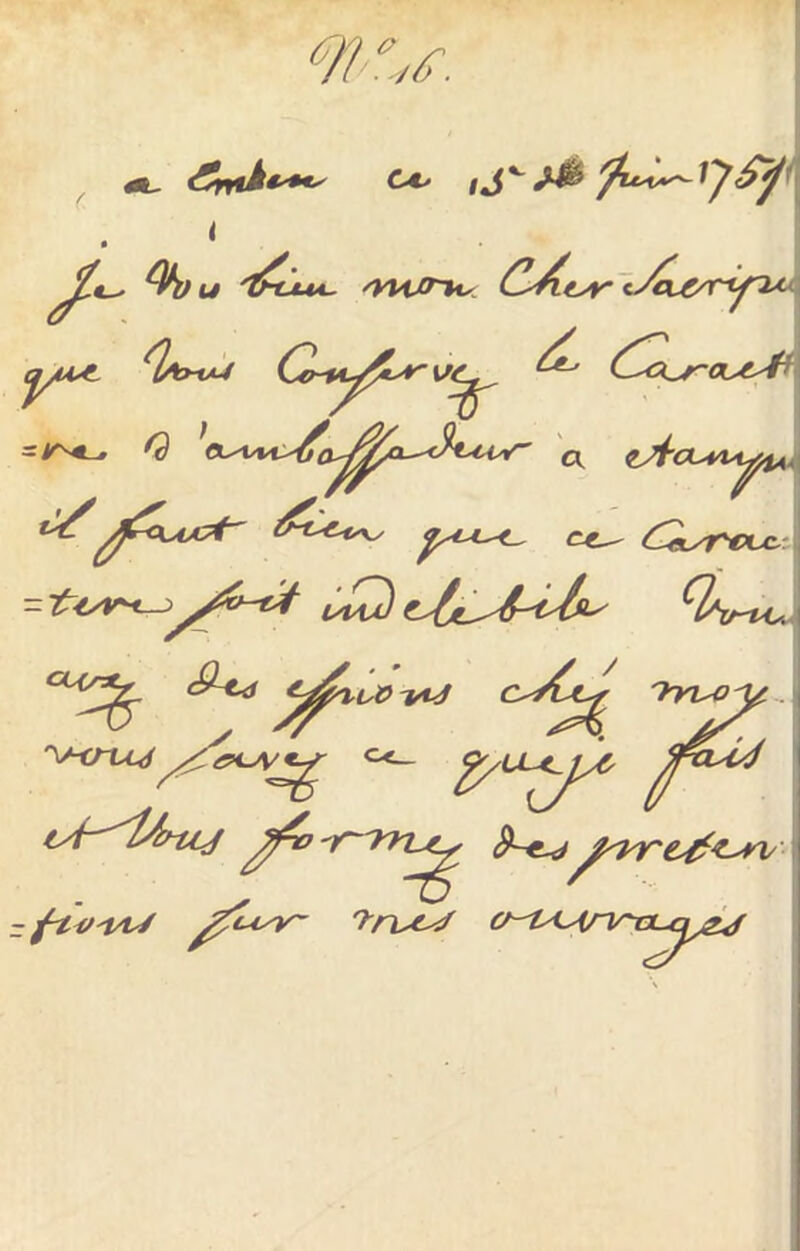 N.º 16.
a Embden ce 15 de Juin 175
Je Vou bien mon Cher
que Vous Conservez le Caract
=re d'ambassadeur a etampu
il faut bien que ce Carac:
=tere soit indelebile Vous
avez des espions chez moy.
vous savez ce que je fais
et Vous formez des preten
=tions sur mes ouvrages